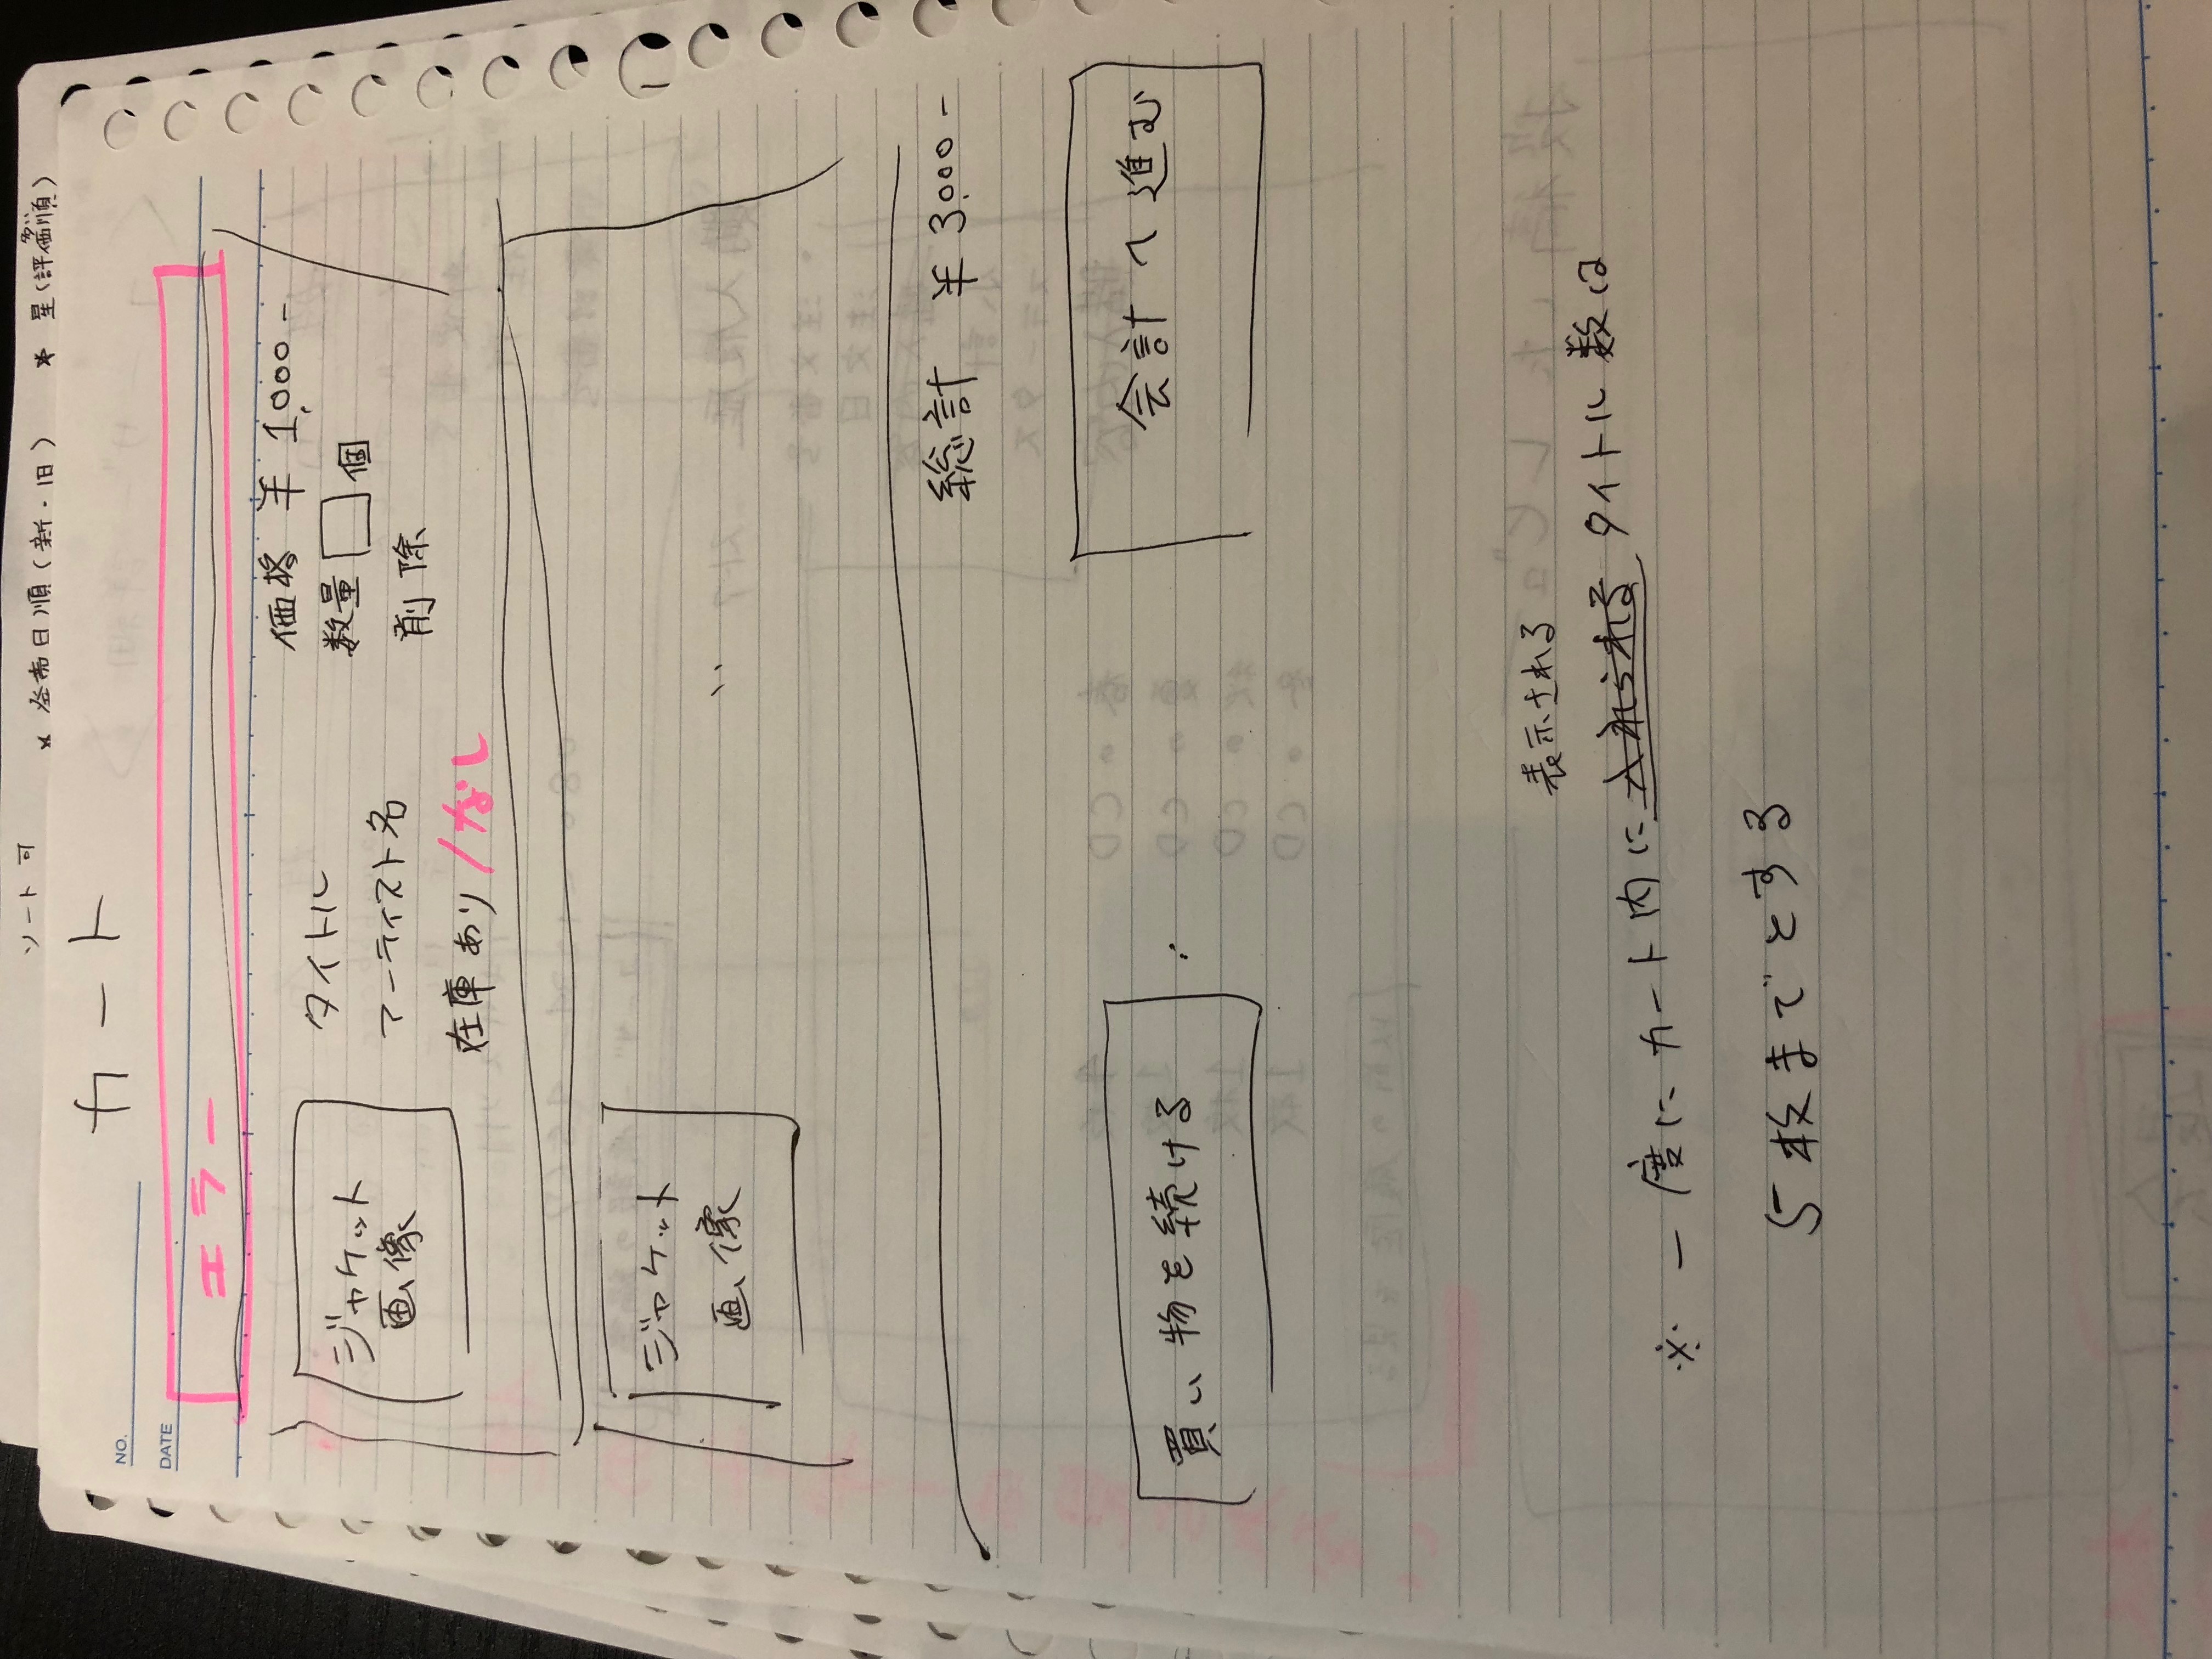 ソート可
* 発売日順（新・旧） * 星（評価順）
NO.
DATE
カート
エラー
ジャケット
画像
タイトル
アーティスト名
在庫あり/なし
価格 ¥1,000-
数量 個
削除
ジャケット
画像
総計 ¥3,000-
買い物を続ける
会計へ進む
表示される
※ 一度にカート内に入れられる タイトル数は
5枚までとする